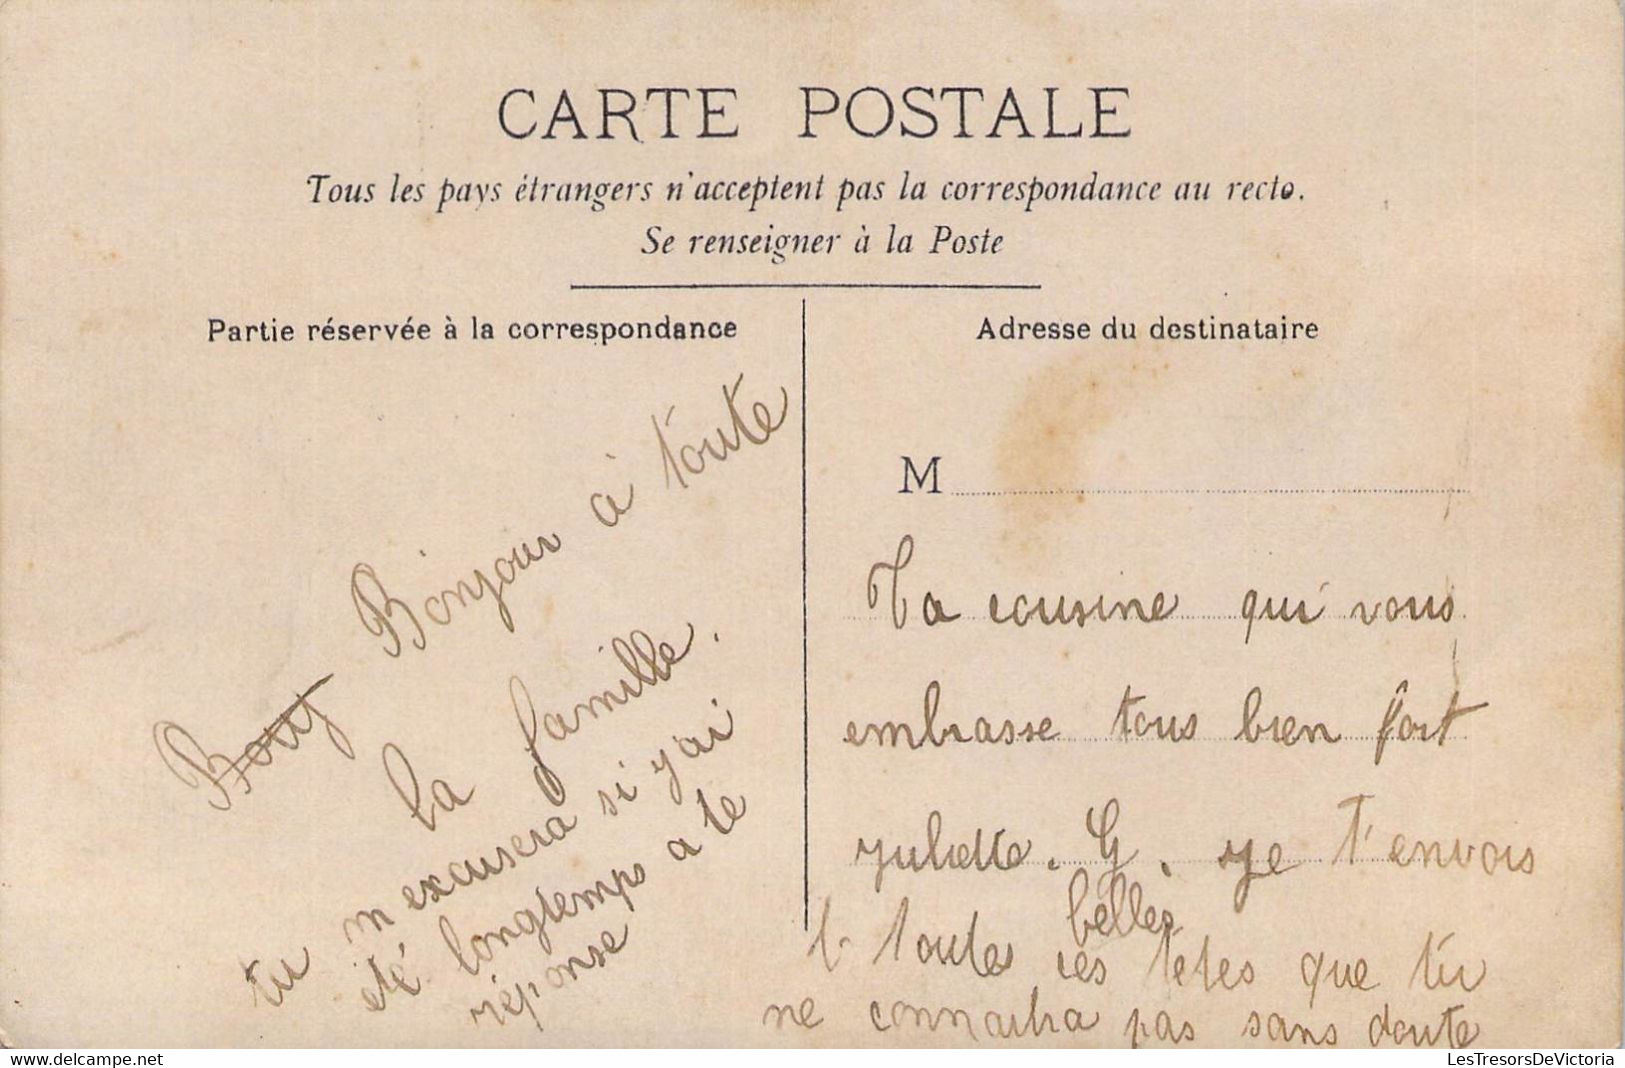 CARTE POSTALE
Tous les pays étrangers n'acceptent pas la correspondance au recto.
Se renseigner à la Poste
Partie réservée à la correspondance
Bonjour à toute
la famille.
tu m excusera si y'ai
été longtemps a te
réponse
Adresse du destinataire
M
Ta cousine qui vous
embrasse tous bien fort
yuliette. G. ye t'envois
belles
toutes ces tetes que tu
ne connaitra pas sans doute
LesTresorsDeVictoria